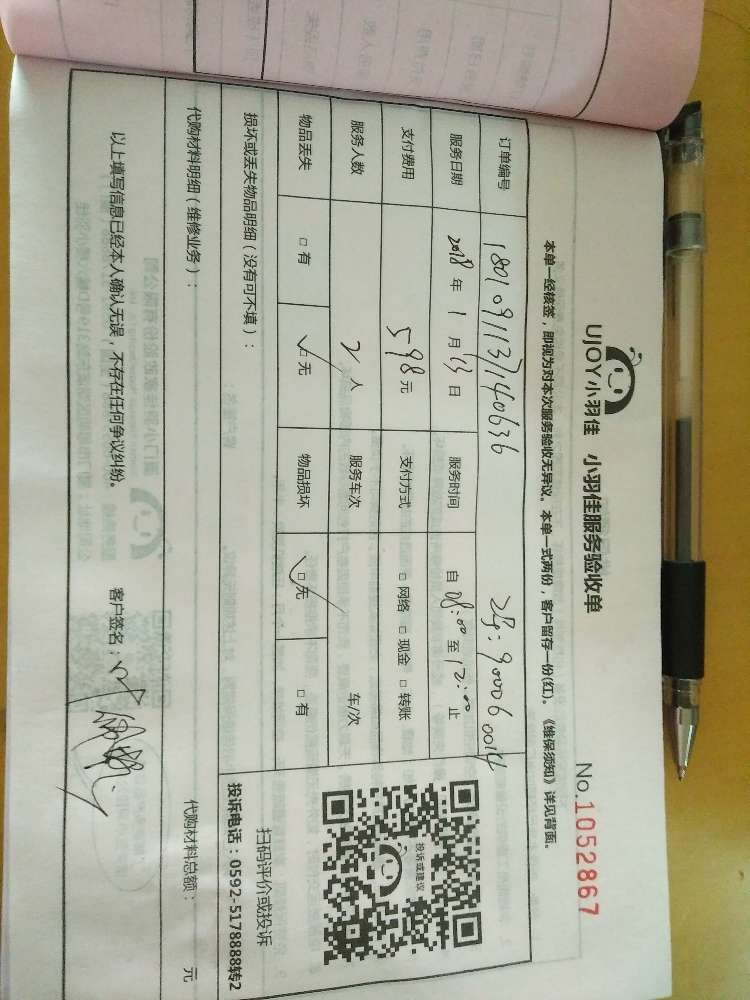 No.1052867
UJOY小羽佳 小羽佳服务验收单
本单一经核签，即视为对本次服务验收无异议。本单一式两份，客户留存一份(红)。《维保须知》详见背面。
订单编号 180109113740636
服务日期 2018年1月13日 服务时间 自08:00至12:00止
支付费用 598元 支付方式 □网络 □现金 □转账
服务人数 2人 服务车次 车/次
物品丢失 □有 □无 物品损坏 □无 □有
损坏或丢失物品明细（没有可不填）：
投诉或建议
扫码评价或投诉
投诉电话：0592-5178888转2
代购材料明细（维修业务）： 代购材料总额： 元
以上填写信息已经本人确认无误，不存在任何争议纠纷。 客户签名：